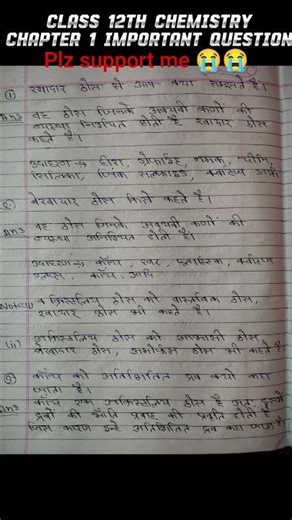 CLASS 12TH CHEMISTRY
CHAPTER 1 IMPORTANT QUESTION
Plz support me 😭😭
① रवादार ठोस से आप क्या समझते हैं।
Ans वह ठोस जिनके अवयवी कणों की
व्यवस्था निश्चित होती है रवादार ठोस
कहते हैं।
उदाहरण → हीरा, ग्रेफाइट, नमक, चीनी,
सिलिका, जिंक सल्फाइड, क्वार्ट्ज आदि
②. बेरवादार ठोस किसे कहते हैं।
Ans वह ठोस जिनके अवयवी कणों की
व्यवस्था अनिश्चित होती है।
उदाहरण → काँच, रबर, प्लास्टिक, क्वार्ट्ज
काँच, आदि
Note (i) क्रिस्टलीय ठोस को वास्तविक ठोस,
रवादार ठोस भी कहते हैं।
(ii) अक्रिस्टलीय ठोस को आभासी ठोस
बेरवादार ठोस, अमोर्फस ठोस भी कहते हैं
③ काँच को अतिशीतित द्रव क्यों कहा
जाता है।
Ans काँच एक अक्रिस्टलीय ठोस है अतः इसमें
द्रवों की भाँति प्रवाह की प्रवृति होती है
जिस कारण इन्हे अतिशीतित द्रव कहा जाता है।